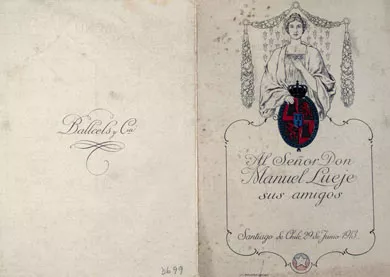 Ballcels y Cía
3699
Al Señor Don
Manuel Lueje
sus amigos
Santiago de Chile, 29 de Junio 1913.